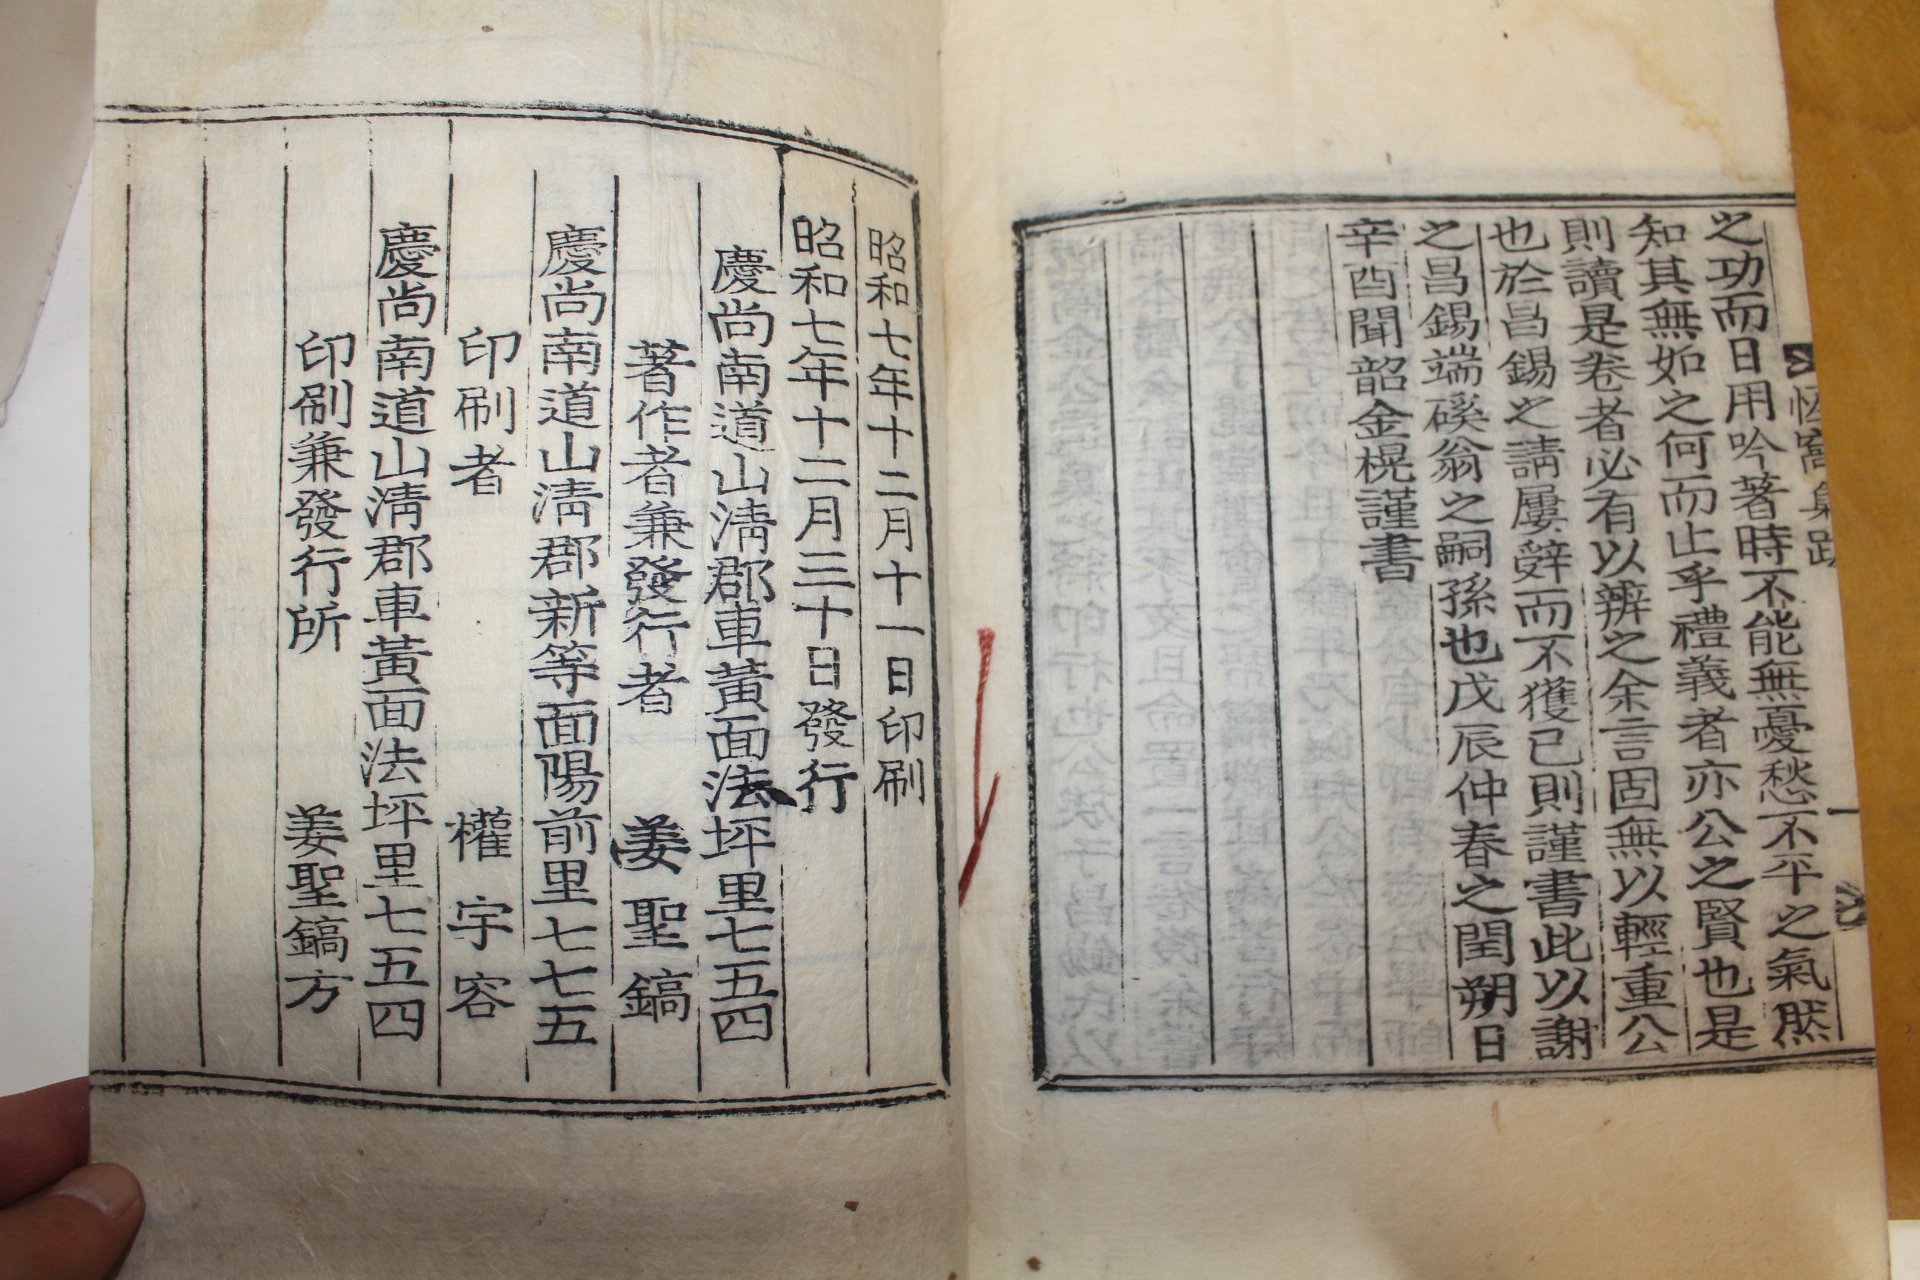 之功而日用吟著時不能無憂愁不平之氣然
知其無如之何而止乎禮義者亦公之賢也是
則讀是卷者必有以辨之余言固無以輕重公
也於昌錫之請屢辭而不獲已則謹書此以謝
之昌錫端磎翁之嗣孫也戊辰仲春之閏朔日
辛酉聞韶金榥謹書
昭和七年十二月十一日印刷
昭和七年十二月三十日發行
慶尚南道山淸郡車黃面法坪里七五四
著作者兼發行者 姜聖鎬
慶尚南道山淸郡新等面陽前里七七五
印刷者 權宇容
慶尚南道山淸郡車黃面法坪里七五四
印刷兼發行所 姜聖鎬方